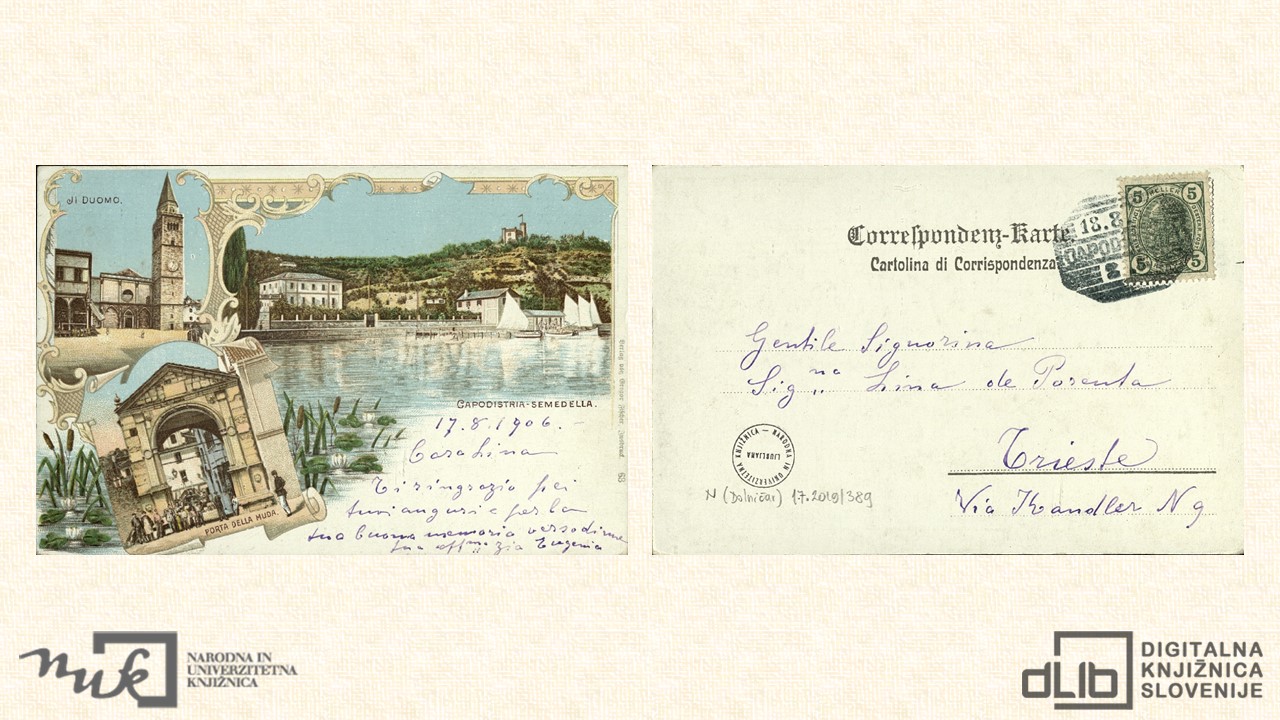 Jl DUOMO.
CAPODISTRIA-SEMEDELLA.
PORTA DELLA MUDA.
17.8.1906. -
Cara Lina
Ti ringrazio pei
tuoi auguri e per la
tua buona memoria verso di me
tua aff zia Eugenia
63
Correspondenz-Karte.
Cartolina di Corrispondenza
5 HELLER 5
5 5
18.8
CAPOD
2
Gentile Signorina
Sig.na Lina de Porenta
Trieste
Via Kandler N 9
NARODNA IN UNIVERZITETNA KNJIŽNICA – LJUBLJANA
N (Dolničar) 17.2019/389
nuk
NARODNA IN
UNIVERZITETNA
KNJIŽNICA
dLib
DIGITALNA
KNJIŽNICA
SLOVENIJE